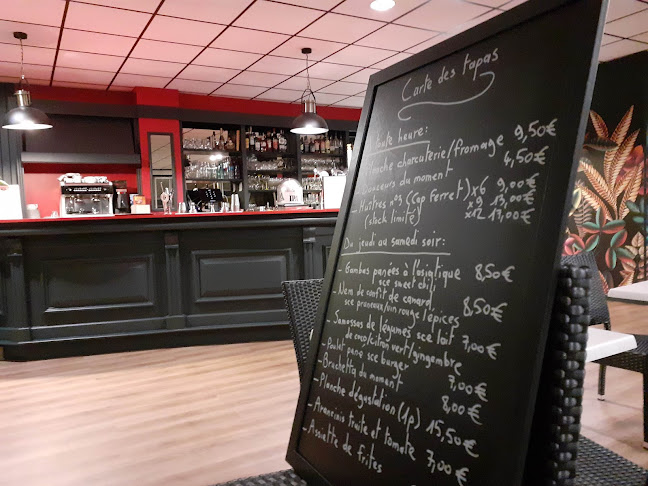 Carte des tapas
Toute heure:
Planche charcuterie/fromage 9,50€
du moment 4,50€
- Huîtres n°3 (Cap Ferret) x6 9,00€
x9 13,00€
(stock limité) x12 17,00€
Du jeudi au samedi soir:
- Gambas panées à l'asiatique
sce sweet chili 8,50€
- Nem de confit de canard
sce pruneaux/vin rouge/épices 8,50€
- Samossas de légumes sce lait
de coco/citron vert/gingembre 7,00€
- Poulet pané sce burger
- Bruchetta du moment 7,00€
- Planche dégustation (1p) 8,00€
- Arancinis truite et tomate 15,50€
- Assiette de frites 7,00€